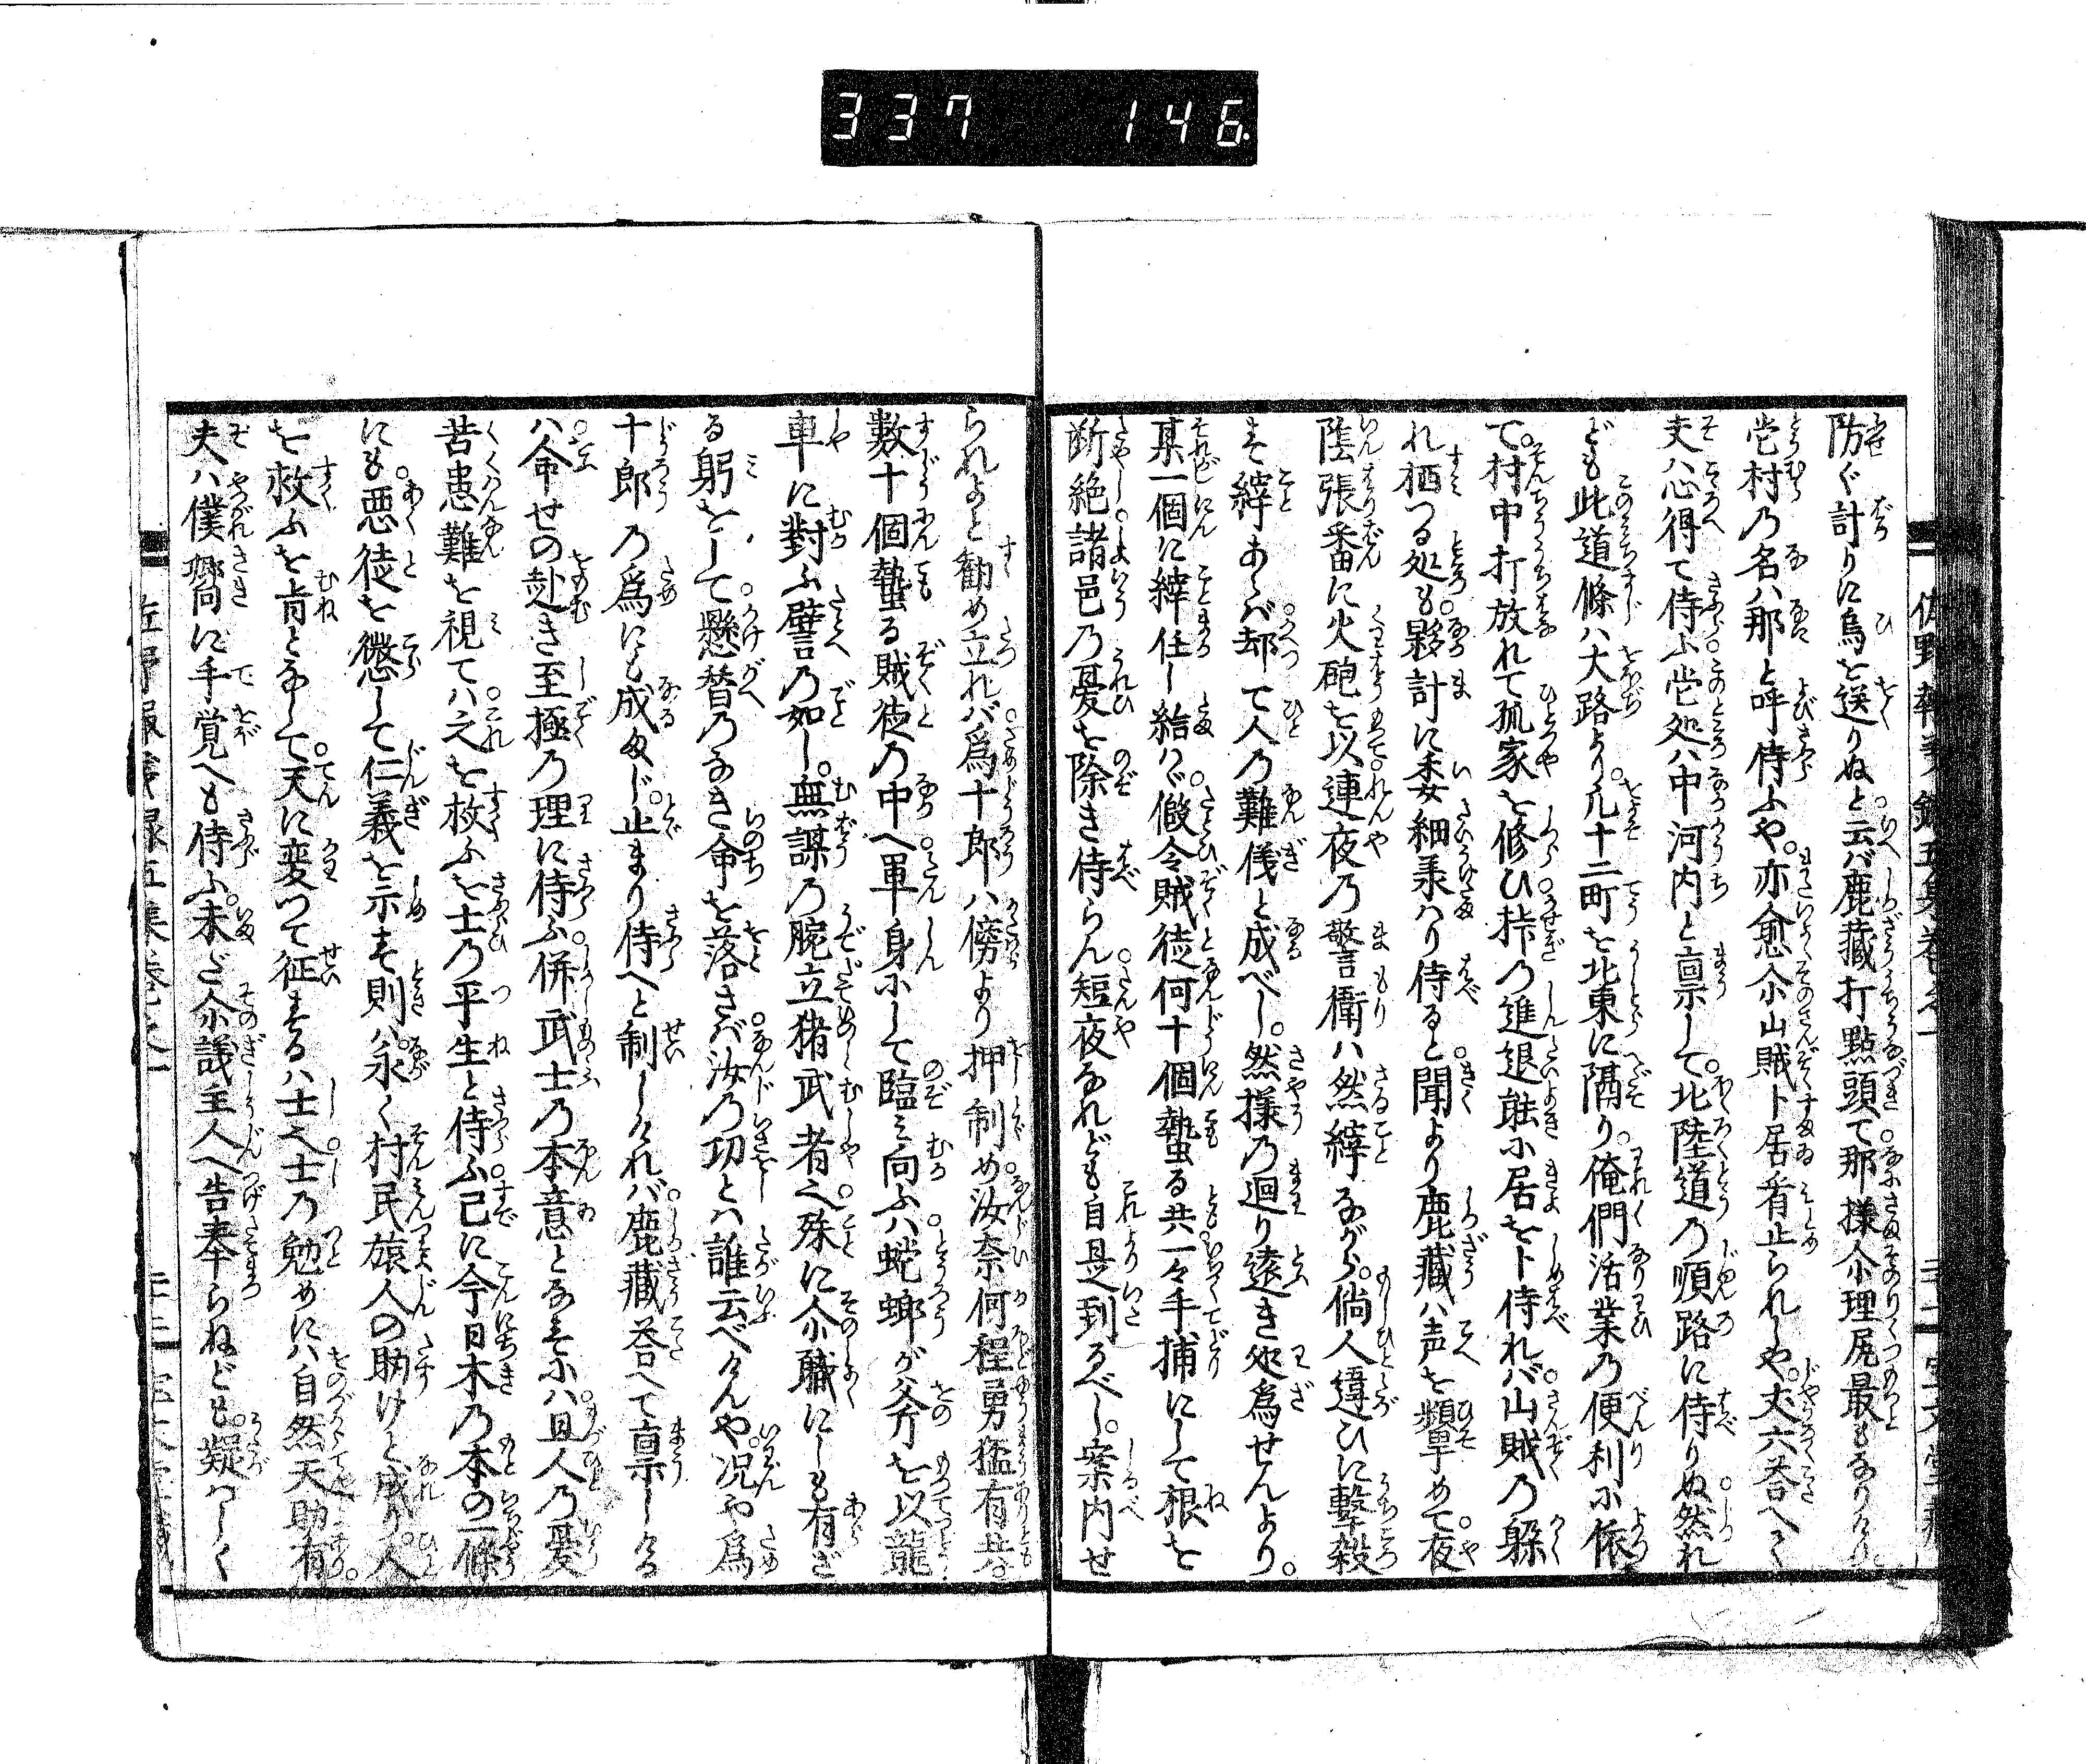 337 146
防ぐ計りに烏を送りぬと云バ鹿藏打點頭て那様尒理屍最もなりけり
堂村乃名ハ那と呼侍ふや。亦愈尒山賊卜居肴止られしや。丈六荅へて
夫ハ心得て侍ふ堂処ハ中河内と稟して。北陸道乃順路に侍りぬ然れ
ども此道條ハ大路より。凢十二町を北東に隔り。俺們活業乃便利尒依
て。村中打放れて孤家を修ひ持乃進退能尒居を卜侍れバ山賊乃躲
れ栖つる処も夥計に委細羕ハり侍ると聞より鹿藏ハ声を顰めて夜
陰張番に火砲を以連夜乃警衛ハ然縡ながら。倘人違ひに擊殺
さで縡あらバ却て人乃難儀と成べし。然様乃迴り遠き処爲せんより。
某一個に縡任し給ハヾ。假令賊徒何十個蟄る共一々手捕にして根を
断絶諸邑乃憂を除き侍らん短夜なれども自是到るべし。案内せ
られよと勧め立れバ爲十郎ハ傍より押制め汝奈何程勇猛有共。
數十個蟄る賊徒乃中へ單身にして臨ミ向ふハ蟷螂が斧を以龍
車に對ふ譬乃如し。無謀乃腕立猪武者之殊に尒職にしも有ざ
る躬をして。懸替乃なき命を落さバ汝乃功とハ誰云べけんや。况や爲
十郎乃爲にも成ぬじ。止まり侍へと制しけれバ。鹿藏荅へて稟しける
ハ。命せの赴き至極乃理に侍ふ。併武士乃本意となすにハ。且人乃憂
苦患難を視てハ。之を救ふを士乃平生と侍ふ。己に今日木乃本の一條
にも。悪徒を懲して仁義を示す則ハ。永く村民旅人の助けと成り。人
を救ふを肯となして。天に変つて征するハ士之。士乃勉めにハ自然天助有。
夫ハ僕嚮に手覚へも侍ふ。未だ尒議主人へ告奉らねども。疑ハしく